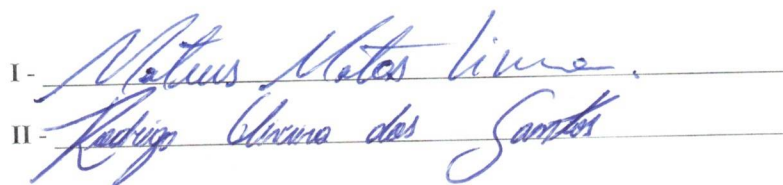 I - Mateus Matos Lima.
II - Rodrigo Oliveira dos Santos